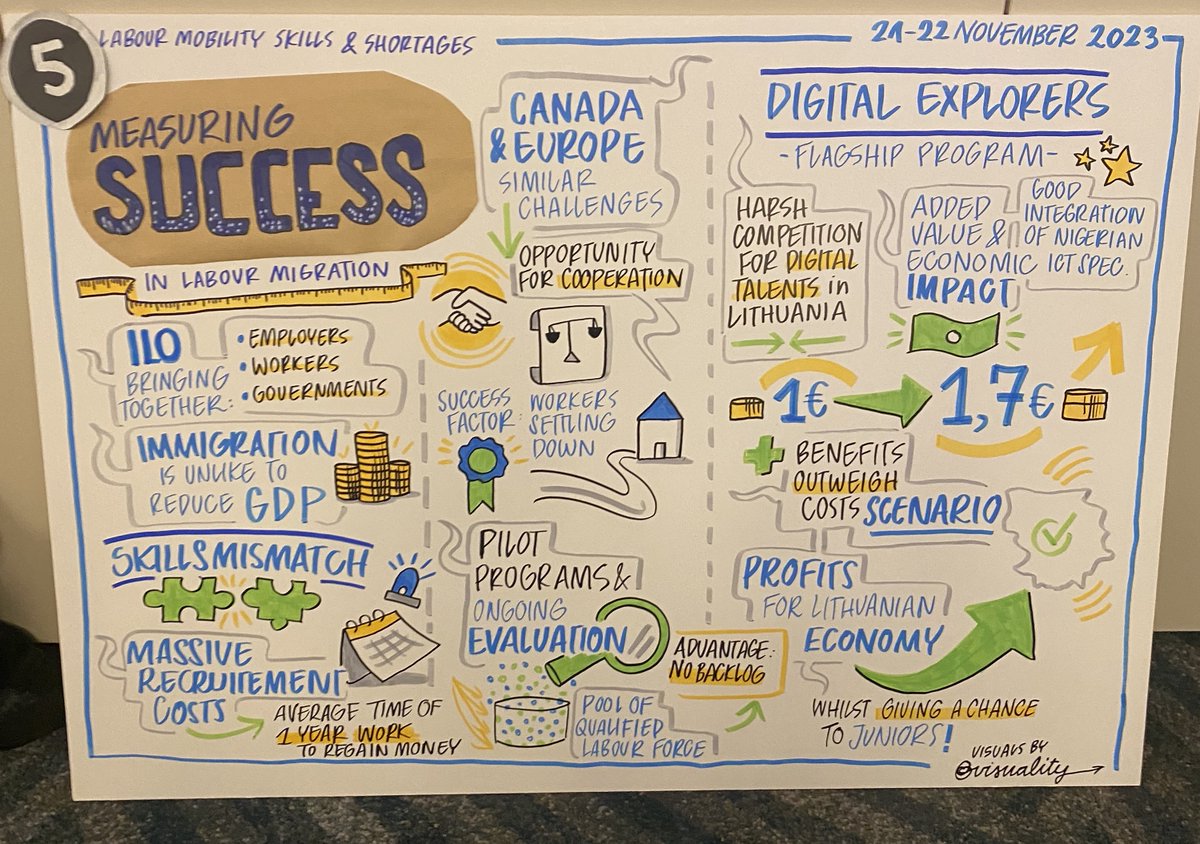 5
LABOUR MOBILITY SKILLS & SHORTAGES
21-22 NOVEMBER 2023
MEASURING
SUCCESS
IN LABOUR MIGRATION
ILO
BRINGING
TOGETHER:
• EMPLOYERS
• WORKERS
• GOVERNMENTS
IMMIGRATION
IS UNLIKE TO
REDUCE GDP
SKILLS MISMATCH
MASSIVE
RECRUITEMENT
COSTS
AVERAGE TIME OF
1 YEAR WORK
TO REGAIN MONEY
CANADA
& EUROPE
SIMILAR
CHALLENGES
OPPORTUNITY
FOR COOPERATION
SUCCESS
FACTOR:
WORKERS
SETTLING
DOWN
PILOT
PROGRAMS &
ONGOING
EVALUATION
POOL OF
QUALIFIED
LABOUR FORCE
ADVANTAGE:
NO BACKLOG
DIGITAL EXPLORERS
- FLAGSHIP PROGRAM -
HARSH
COMPETITION
FOR DIGITAL
TALENTS in
LITHUANIA
ADDED
VALUE &
ECONOMIC
IMPACT
GOOD
INTEGRATION
OF NIGERIAN
ICT SPEC.
1€
1,7€
BENEFITS
OUTWEIGH
COSTS SCENARIO
PROFITS
FOR LITHUANIAN
ECONOMY
WHILST GIVING A CHANCE
TO JUNIORS!
VISUALS BY
@visuality